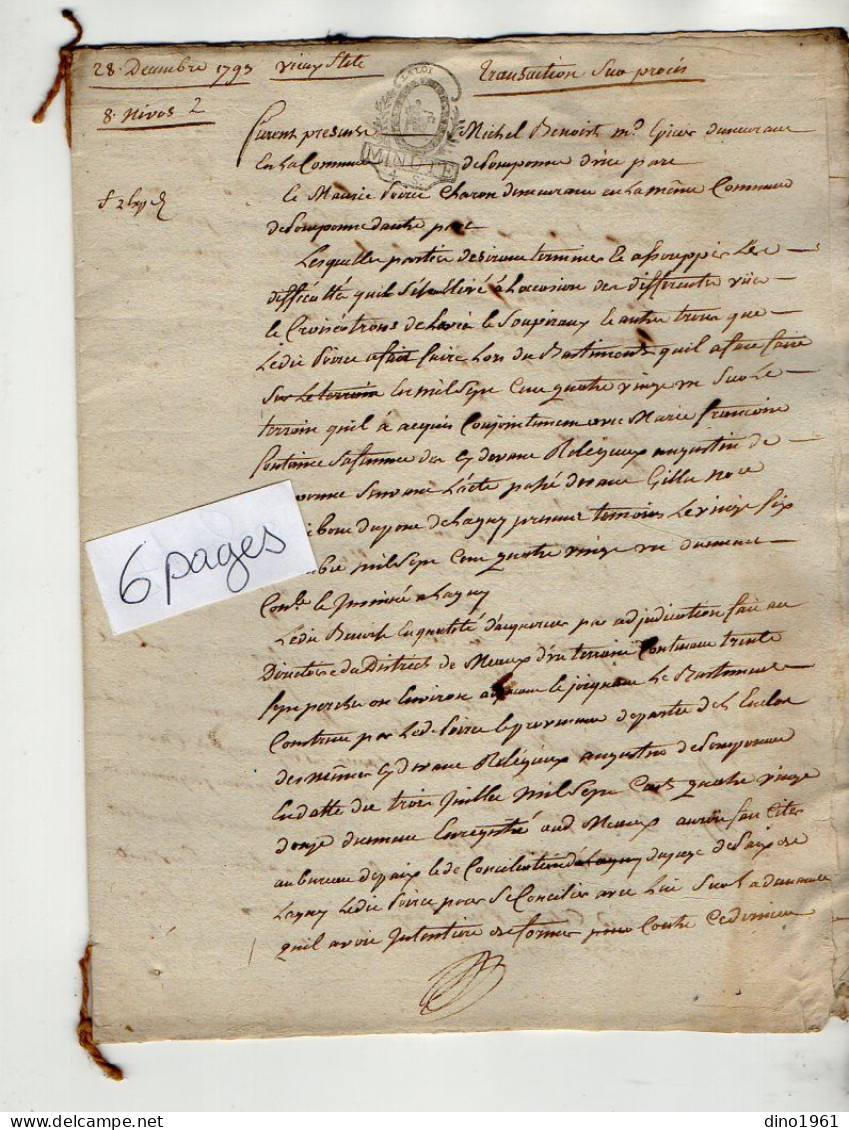 28. Decembre 1793 vieux Stile
transaction Sur procès
8. Nivos 2
LA LOI
MINUTE
4. S.
furent presens Michel Benoist md Epicier demeurant
En la Commune de Pomponne d'une part
Et Maurice Poirée Charon demeurant en la même Commune
de Pomponne d'autre part
Lesquelles parties desirant terminer et assoupir les
difficultés qui s'é élévé à l'occasion des differentes vües
et Croisées trous de et Soupiraux et autre trous que
Ledit Poirée a fait faire Lors du Bastiments qu'il a fait faire
Sur Le terrein En mil Sept Cent quatre vingt un Sur Le
terrein qu'il à acquis Conjointement avec Marie françoise
fontaine Sa femme des Cy devant Religieux augustin de
Suivant L'acte passé devant Gille Nore
de Lagny premier temoins Le vingt Six
mil Sept Cent quatre vingt un dument
Conle et a Lagny
Ledit Benoist En qualité d'acquereur par adjudication fait au
Directoire du District de Meaux d'un terrein Contenant trente
Sept perches ou Environ et joignant Le Bastiment
Construit par Ledt Poirée et provenant de partie de L'Enclos
des mêmes Cy devant Religieux augustin de Pomponne
En datte du trois Juillet Mil Sept Cent quatre vingt
douze dument Enregistré aud Meaux auroit fait Citer
au bureau de paix et de Conciliation de Lagny de Paix de
Lagny Ledit Poirée pour Se Concilier avec Lui Sur La demande
qu'il avoit Intention de former pour Contre Ce dernier
6 pages
dino1961